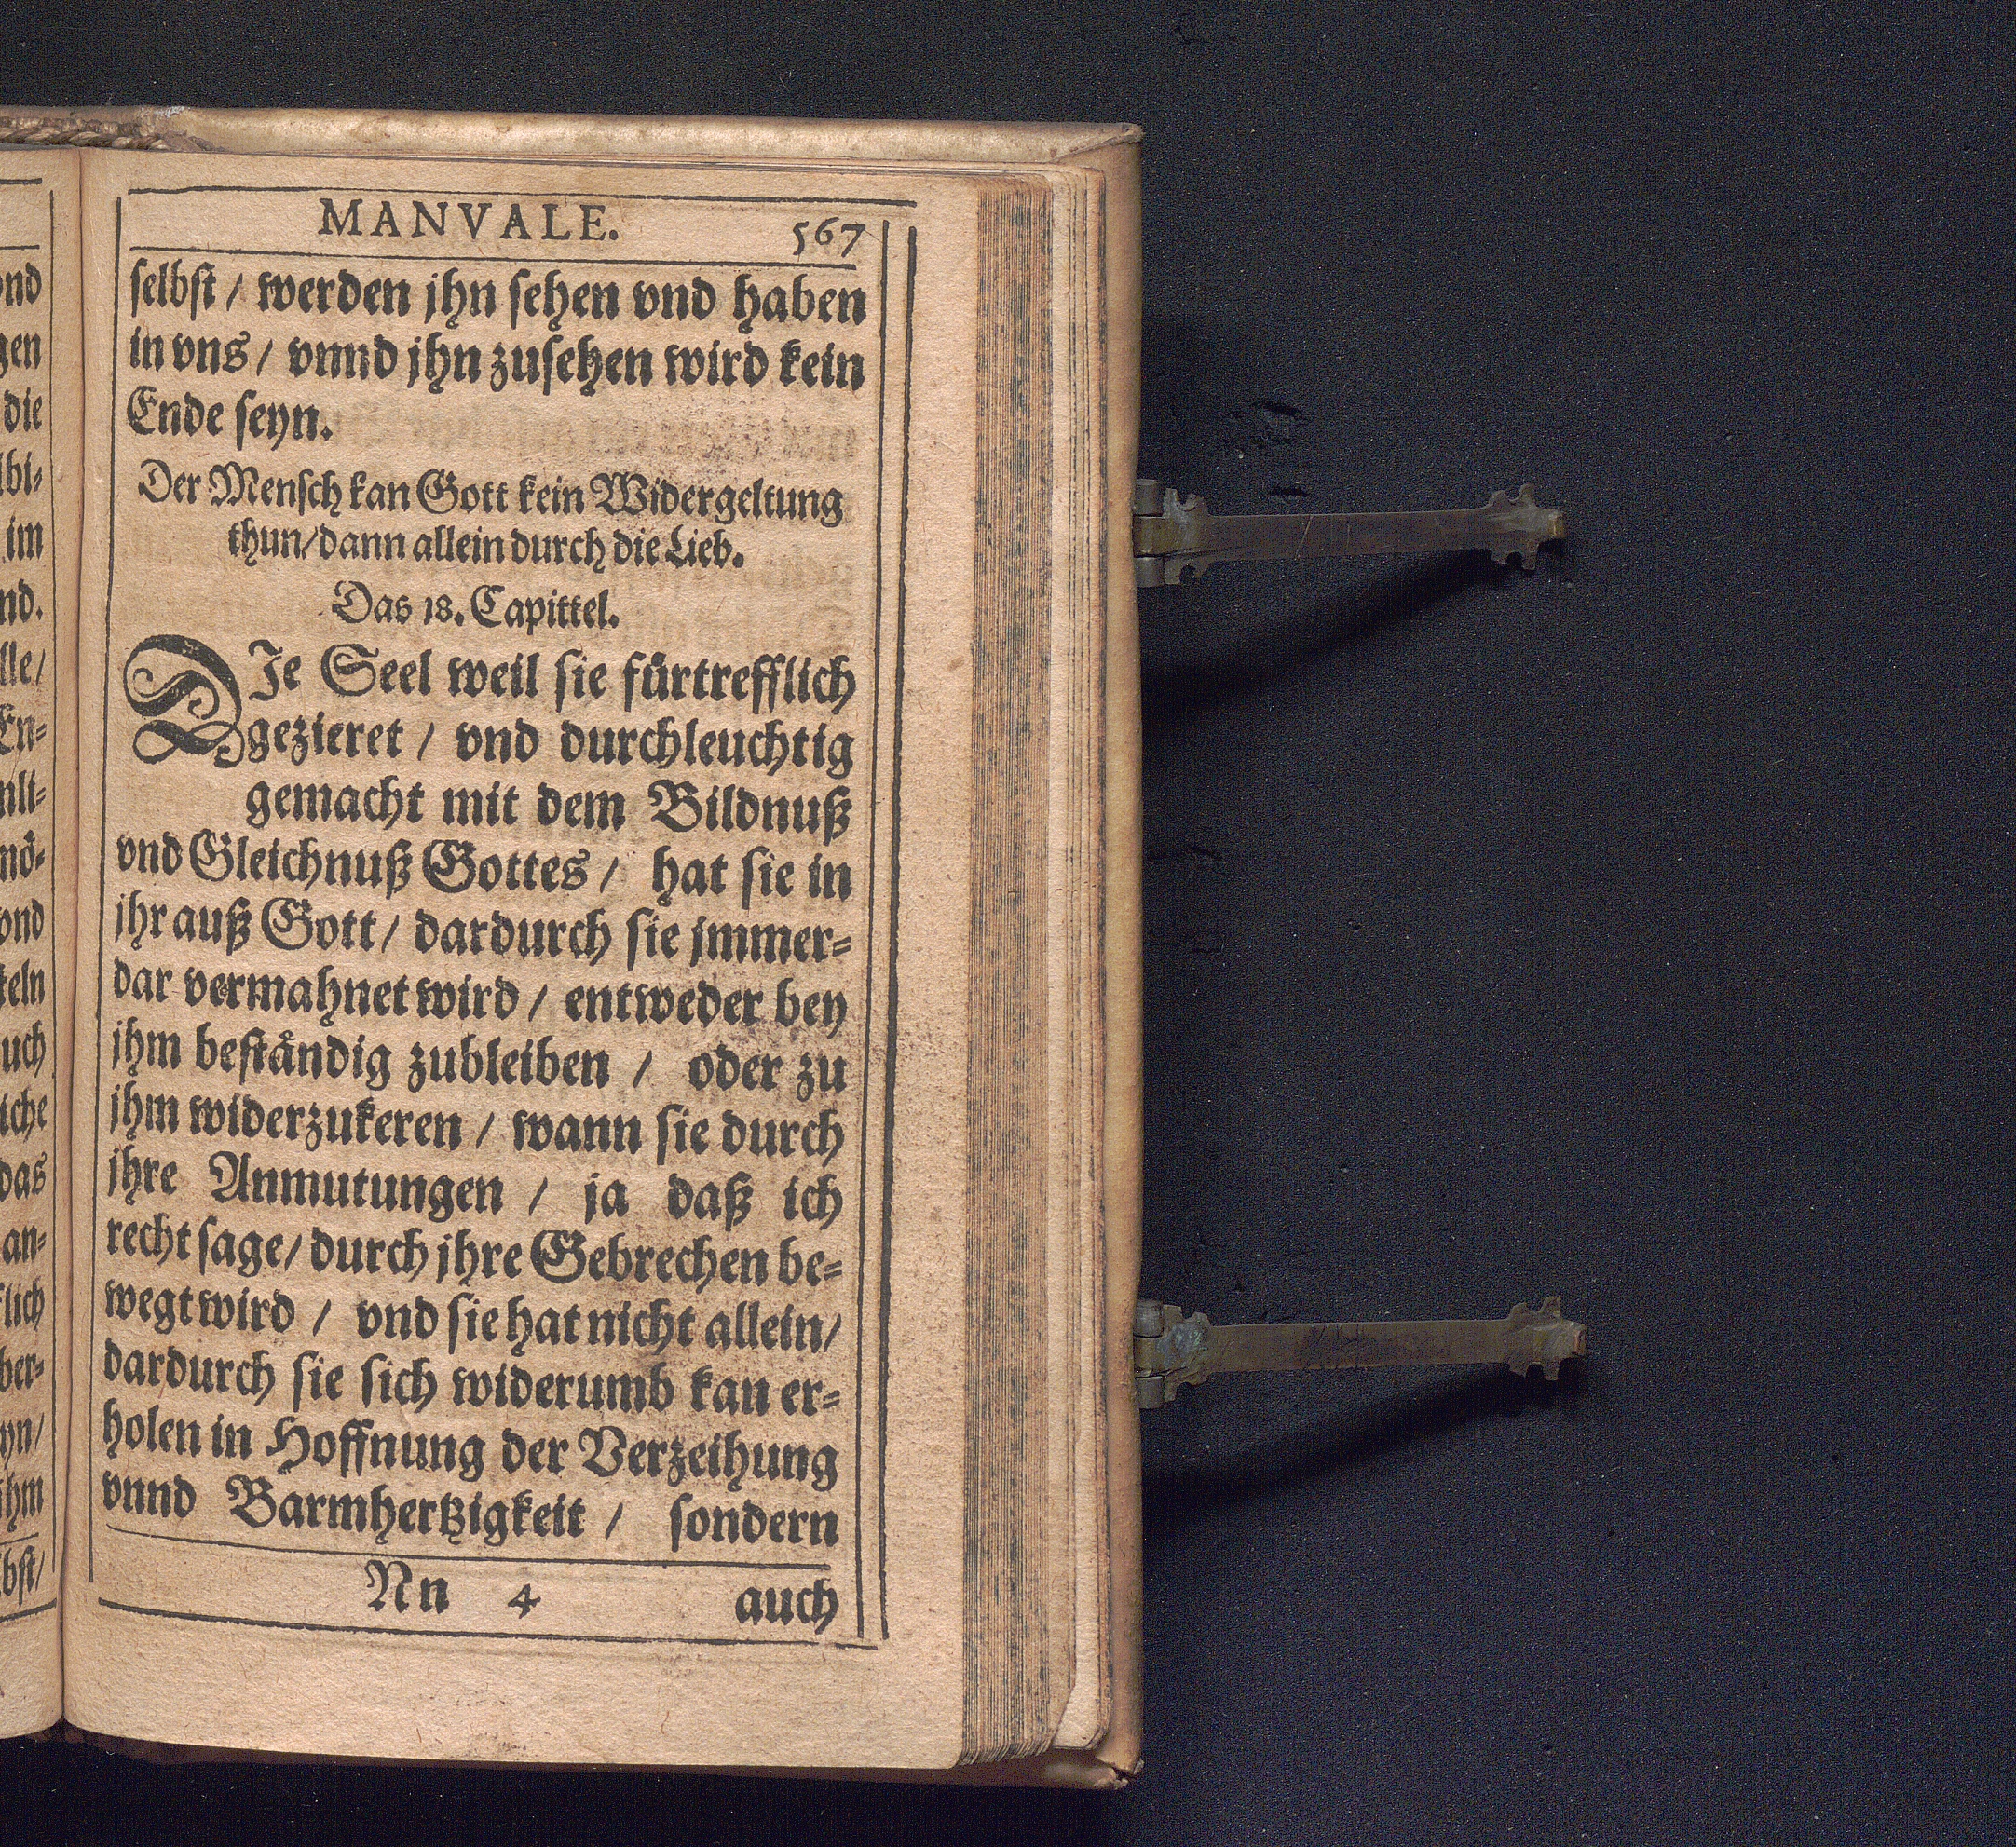 MANVALE. 567
selbst / werden jhn sehen vnd haben
in vns / vnnd jhn zusehen wird kein
Ende seyn.
Der Mensch kan Gott kein Widergeltung
thun/dann allein durch die Lieb.
Das 18. Capittel.
DIe Seel weil sie fürtrefflich
gezieret / vnd durchleuchtig
gemacht mit dem Bildnuß
vnd Gleichnuß Gottes / hat sie in
jhr auß Gott / dardurch sie jmmer=
dar vermahnet wird / entweder bey
jhm beständig zubleiben / oder zu
jhm widerzukeren / wann sie durch
jhre Anmutungen / ja daß ich
recht sage/ durch jhre Gebrechen be=
wegt wird / vnd sie hat nicht allein/
dardurch sie sich widerumb kan er=
holen in Hoffnung der Verzeihung
vnnd Barmhertzigkeit / sondern
Nn 4 auch